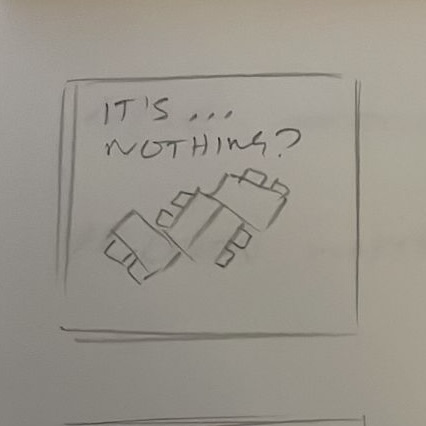 IT'S ...
NOTHING?